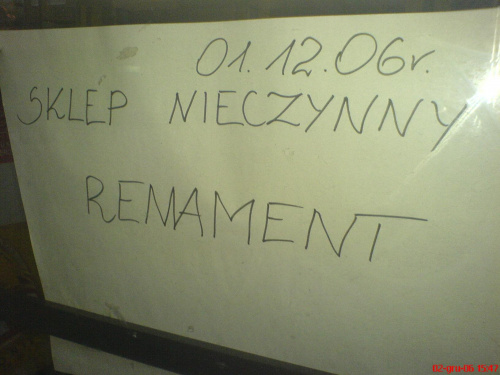 01.12.06r.
SKLEP NIECZYNNY
RENAMENT
02-gru-06 15:47